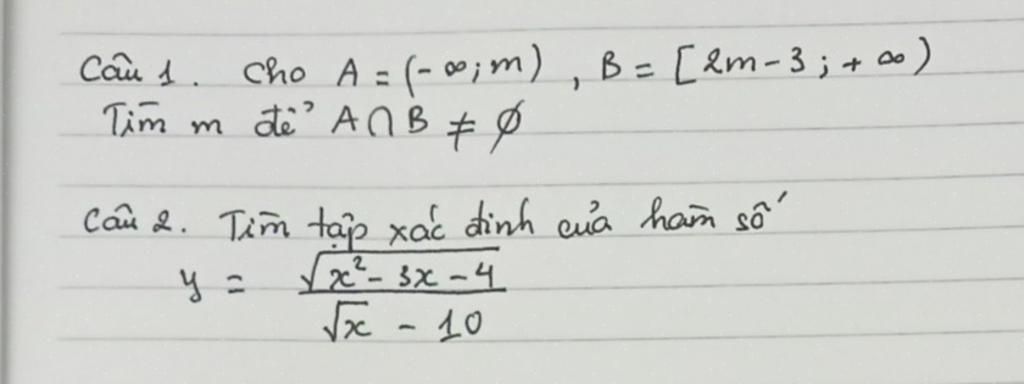 Câu 1. Cho A = (-∞; m), B = [2m - 3; + ∞)
Tìm m để A ∩ B ≠ ∅
Câu 2. Tìm tập xác định của hàm số
y = \frac{\sqrt{x^2 - 3x - 4}}{\sqrt{x} - 10}